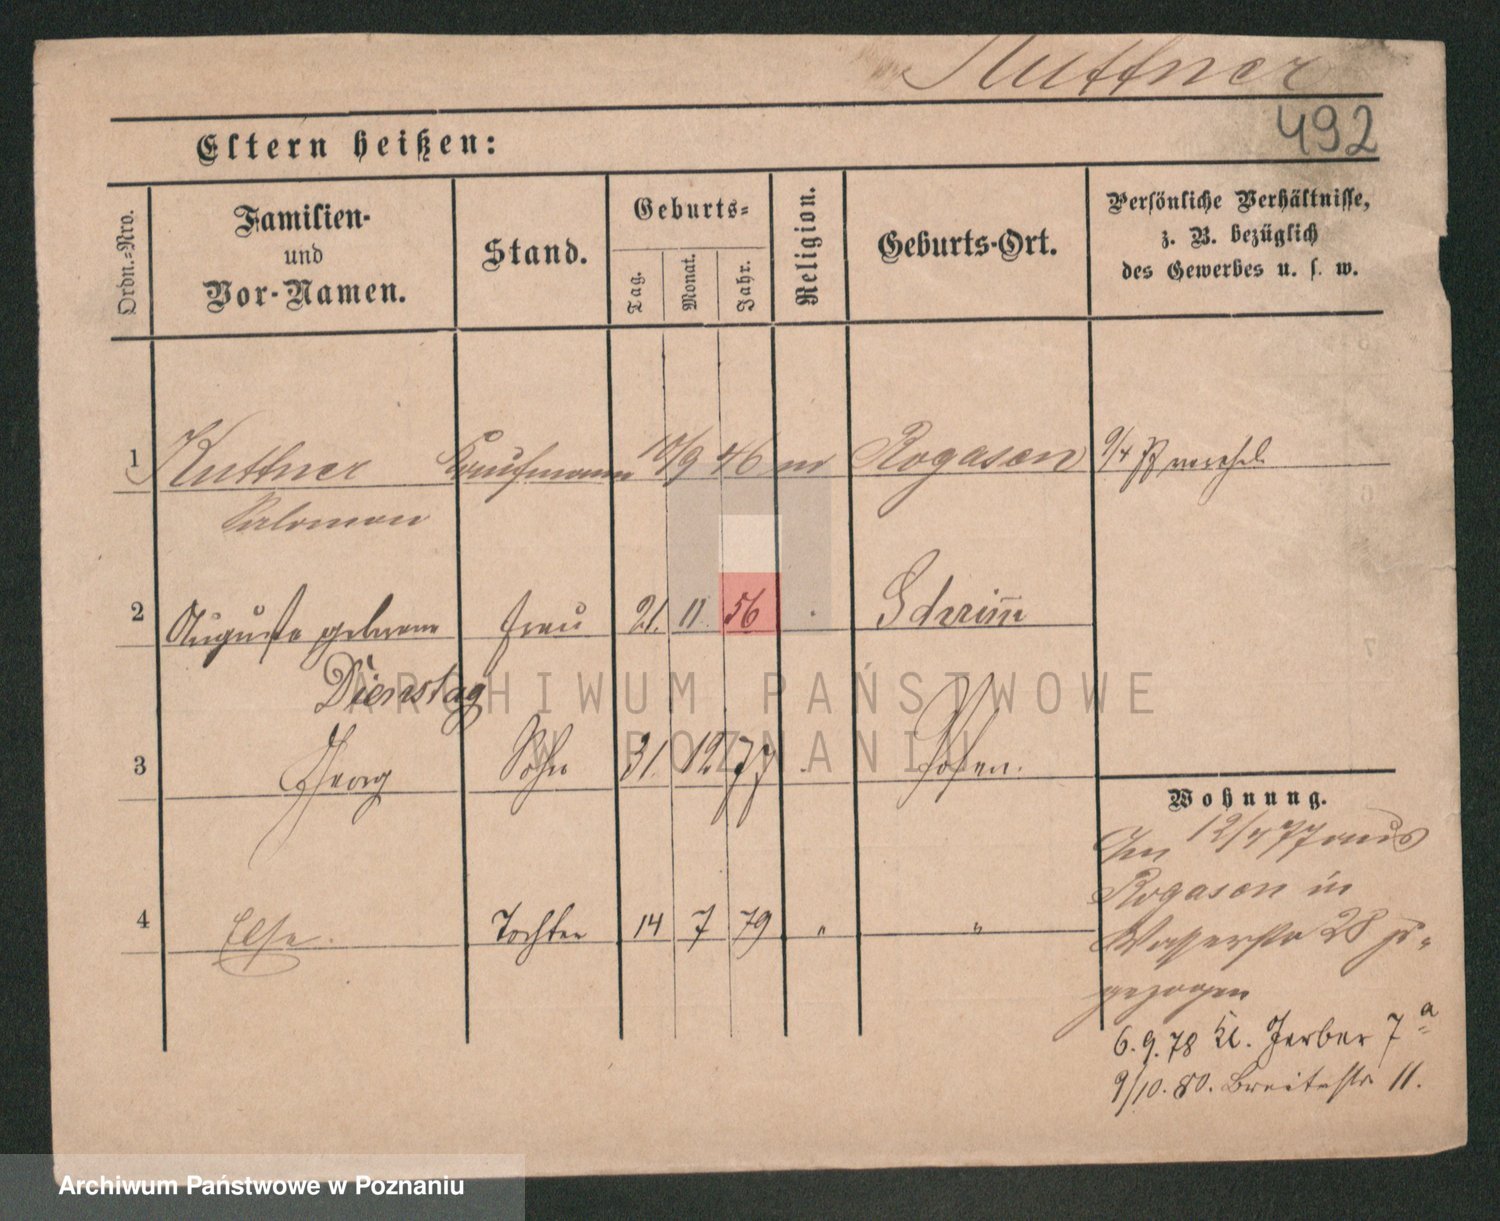 Kuttner
492
Eltern heißen:
Ordn.-Nro.
Familien-
und
Vor-Namen.
Stand.
Geburts-
Tag.
Monat.
Jahr.
Religion.
Geburts-Ort.
Persönliche Verhältnisse,
z. B. bezüglich
des Gewerbes u. s. w.
1 Kuttner Kaufmann 10/9 46 m Rogasen 9/4
Salomon
2 Auguste geborene Frau 21. 11. 56 Schrim̄
Dienstag
3 Georg Sohn 31. 12 77 Posen.
4 Else. Tochter 14 7 79 " "
Wohnung.
Im 12/4 77 aus
Rogasen in
Wasserstr 28 zu-
gezogen
6. 9. 78 Kl. Gerber 7 a
9/10. 80. Breitestr 11.
ARCHIWUM PAŃSTWOWE
W POZNANIU
Archiwum Państwowe w Poznaniu